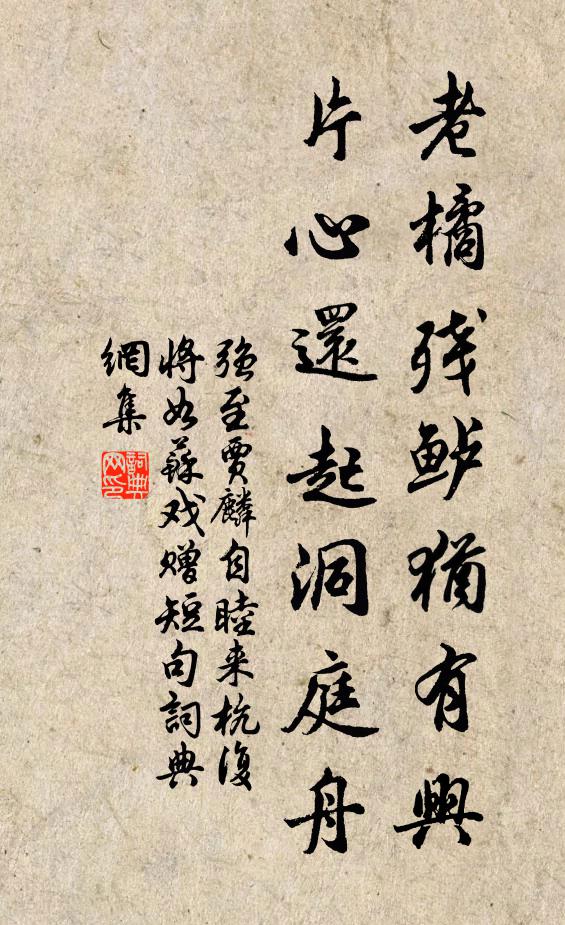 老橘残鲈猶有興
片心還起洞庭舟
強至賈麟自睦来杭復
将如蘇戏赠短句詞典
網集
詞典
网印